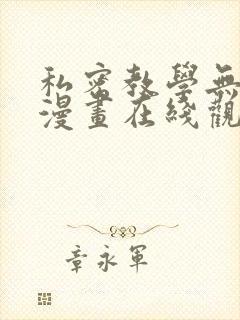 私密教學無
漫畫在綫觀
章永軍